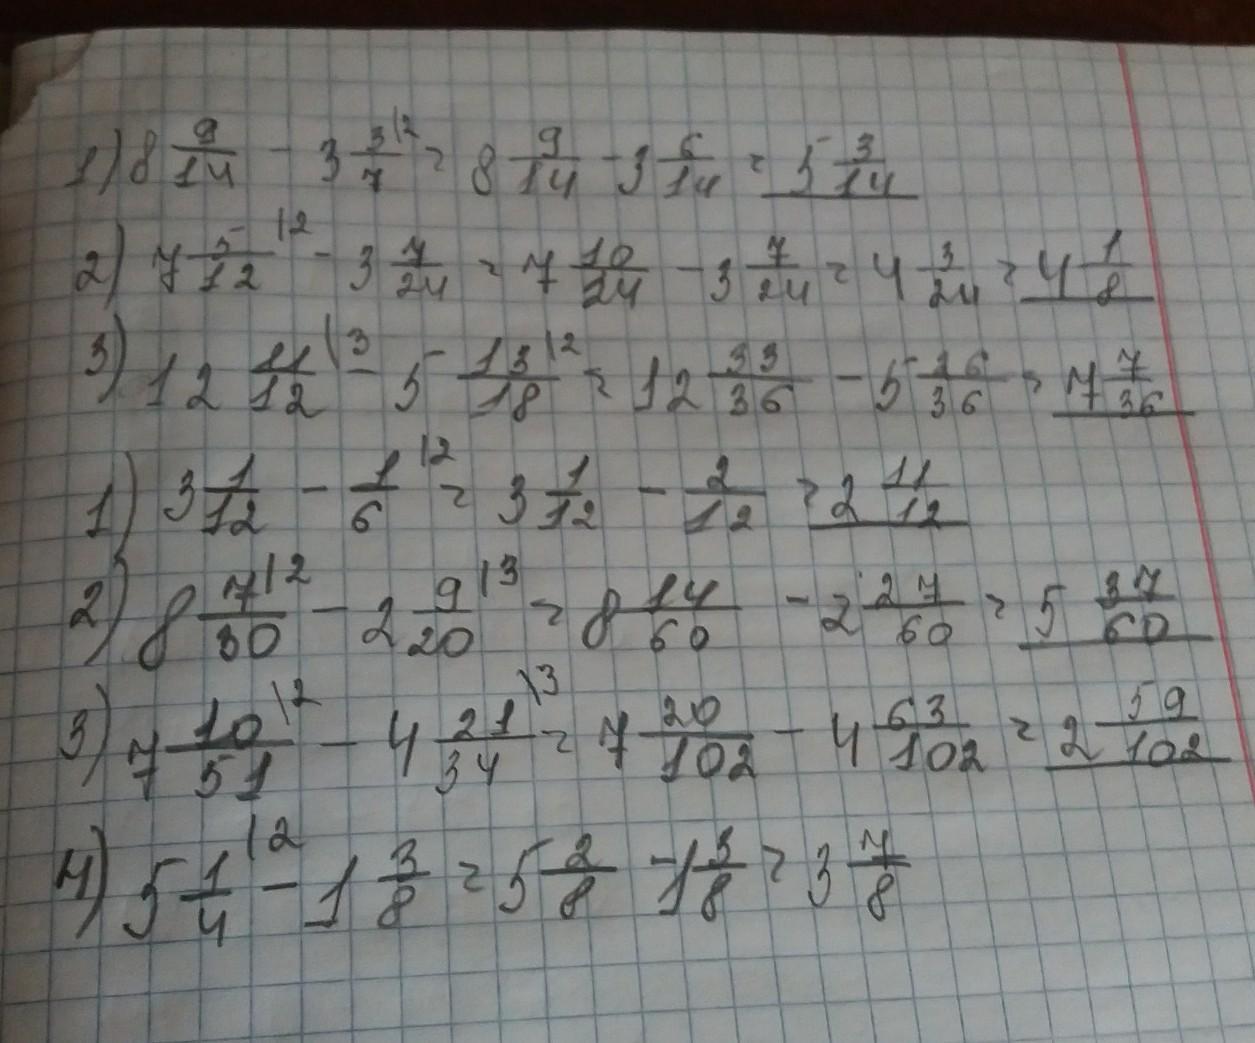 1) 8 9/14 - 3 3/7 |2 = 8 9/14 - 3 6/14 = 5 3/14
2) 7 5/12 |2 - 3 7/24 = 7 10/24 - 3 7/24 = 4 3/24 = 4 1/8
3) 12 11/12 \3 - 5 13/18 |2 = 12 33/36 - 5 26/36 = 7 7/36
1) 3 1/12 - 1/6 |2 = 3 1/12 - 2/12 = 2 11/12
2) 8 7/30 |2 - 2 9/20 |3 = 8 14/60 - 2 27/60 = 5 37/60
3) 7 10/51 \2 - 4 21/34 \3 = 7 20/102 - 4 63/102 = 2 59/102
4) 5 1/4 |2 - 1 3/8 = 5 2/8 - 1 3/8 = 3 7/8